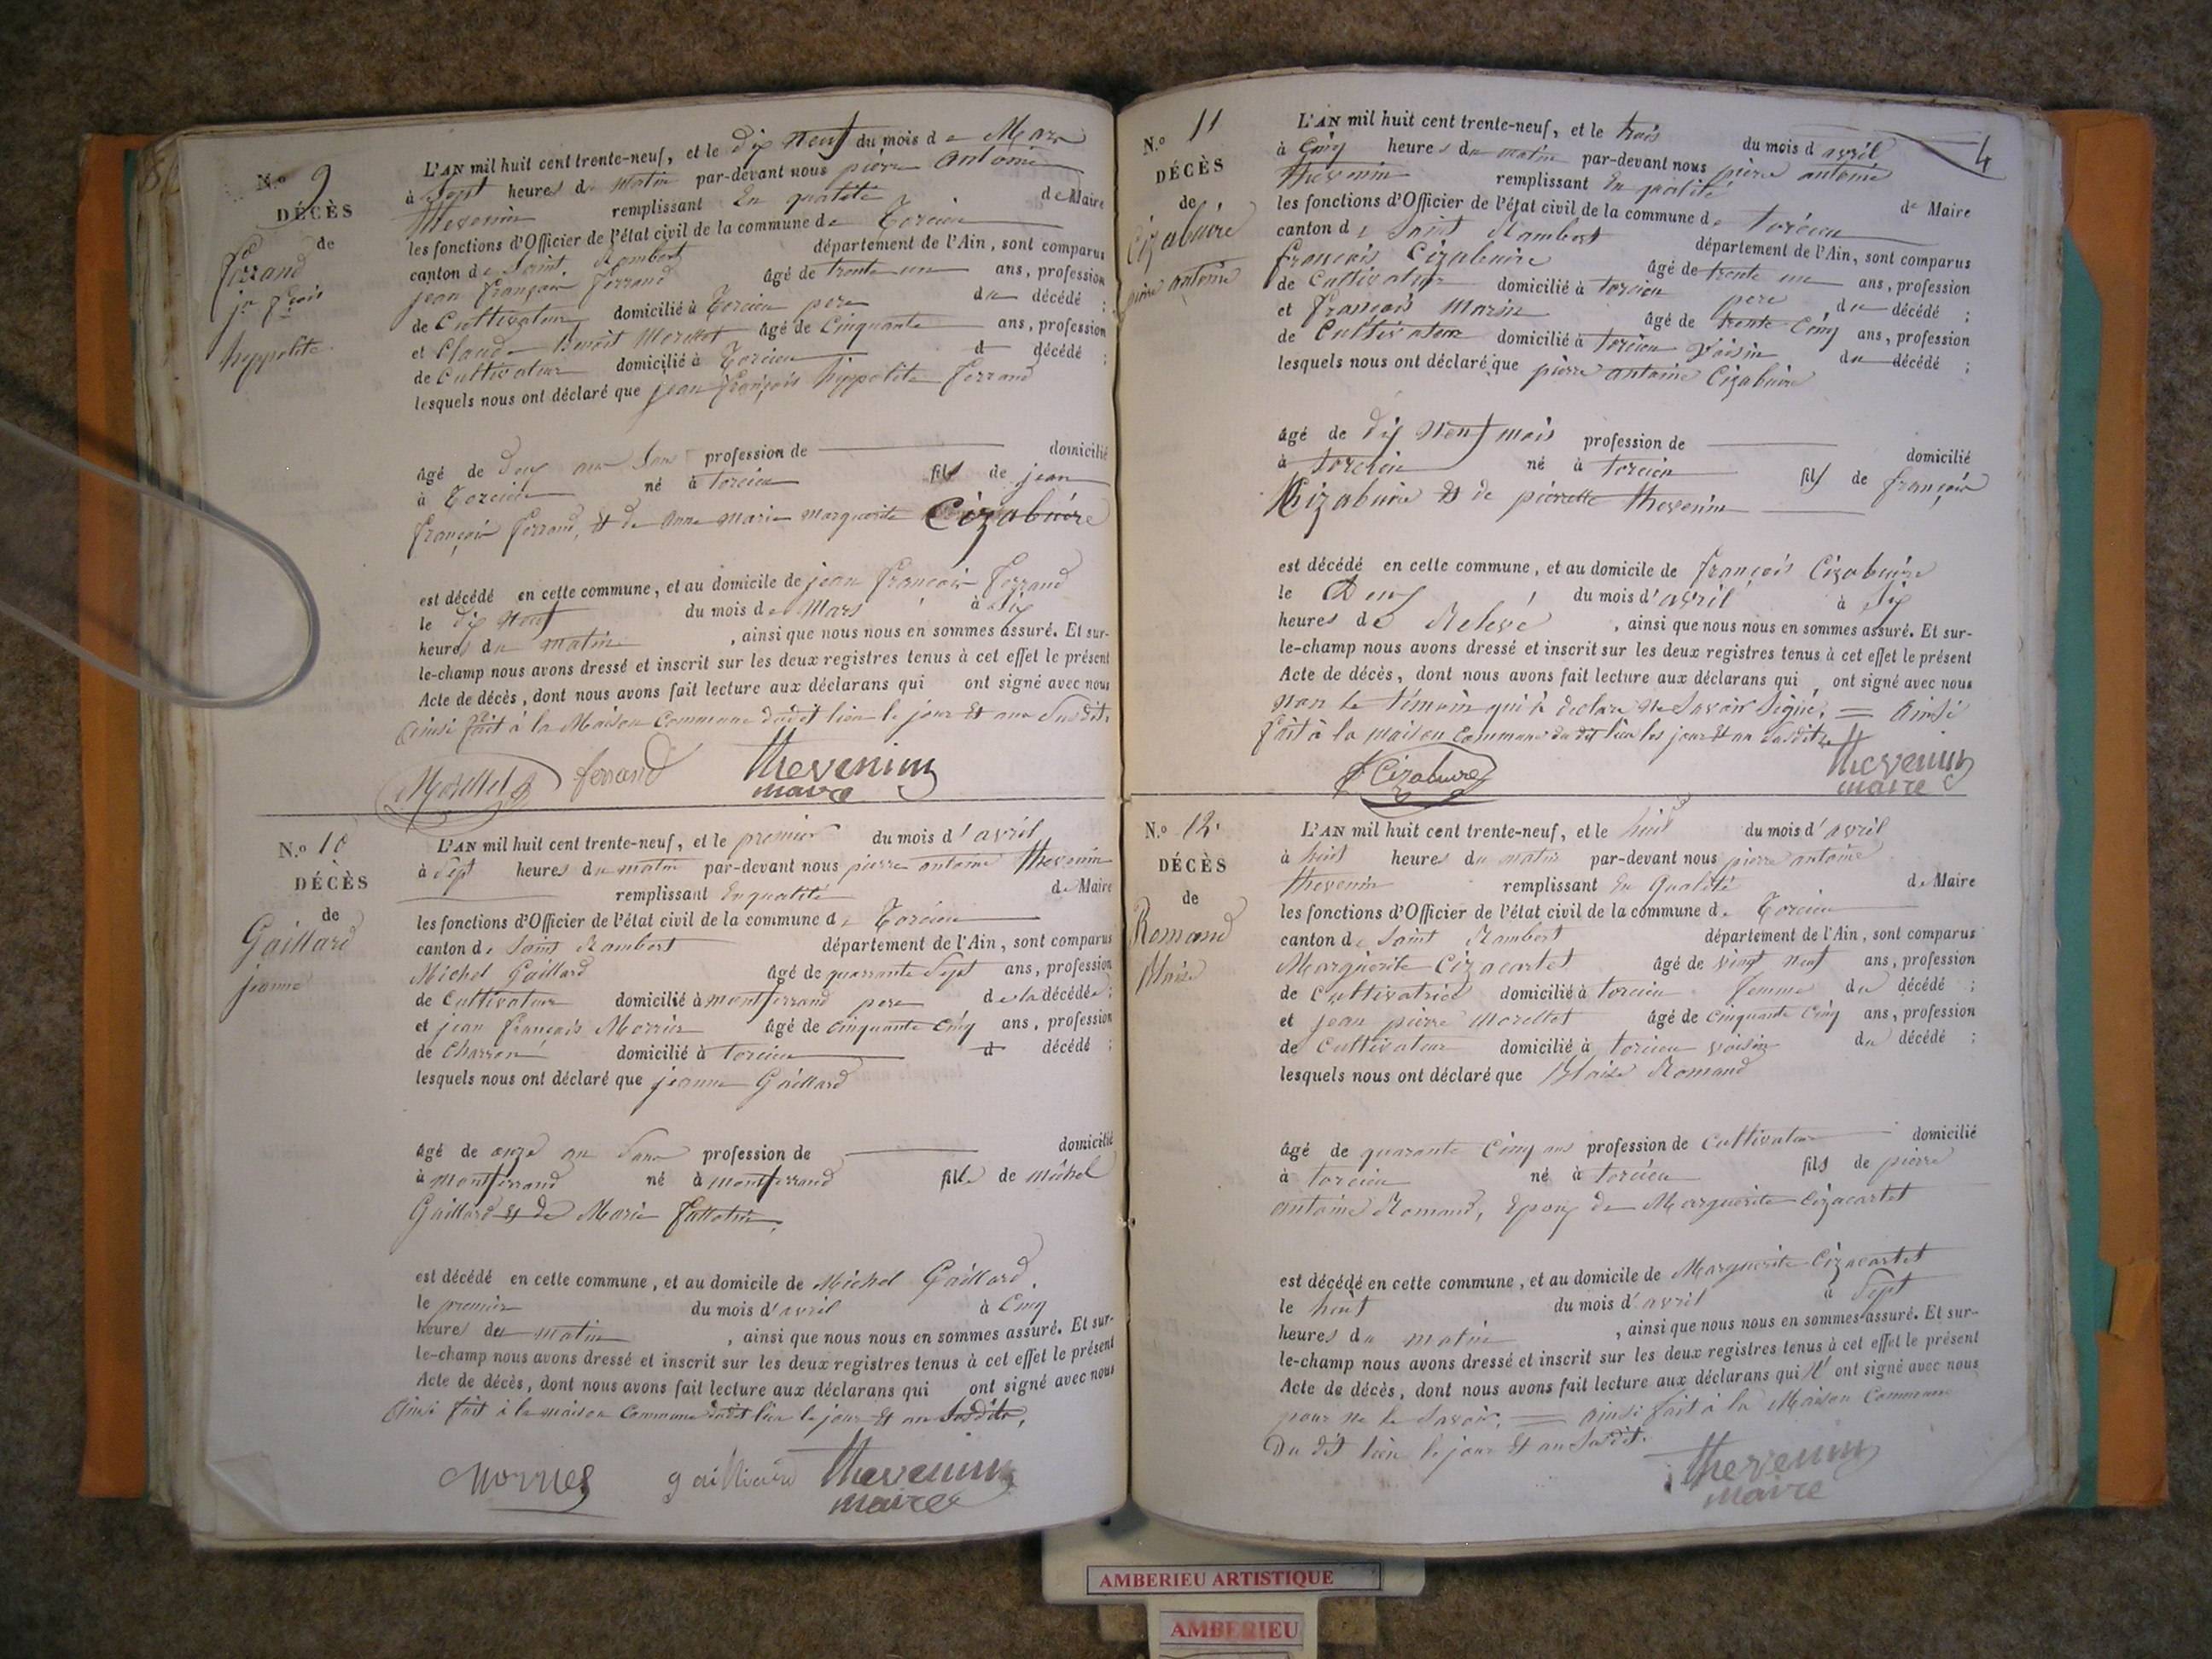 N.o 9
DÉCÈS
de
Ferrand
jn fçois
hyppolite
L'AN mil huit cent trente-neuf, et le dix neuf du mois de Mars
à Sept heures du matin par-devant nous pierre antoine
thevenin remplissant En qualité de Maire
les fonctions d'Officier de l'état civil de la commune de Torcieu
canton de Saint Rambert département de l'Ain, sont comparus
jean françois ferrand âgé de trente un ans, profession
de Cultivateur domicilié à Torcieu pere du décédé ;
et Claude Benoit Morellet âgé de Cinquante ans, profession
de Cultivateur domicilié à Torcieu d décédé ;
lesquels nous ont déclaré que jean françois hyppolite ferrand
âgé de deux ans profession de domicilié
à Torcieu né à torcieu fils de jean
françois ferrand, Et de anne marie marguerite Cizabuire
est décédé en cette commune, et au domicile de jean françois ferrand
le dix neuf du mois de Mars à Six
heures du matin , ainsi que nous nous en sommes assuré. Et sur-
le-champ nous avons dressé et inscrit sur les deux registres tenus à cet effet le présent
Acte de décès, dont nous avons fait lecture aux déclarans qui ont signé avec nous
Ainsi fait à la Maison Commune dudit lieu le jour Et an Susdits.
Morellet ferrand thevenin
maire
N.o 10
DÉCÈS
de
Gaillard
jeanne
L'AN mil huit cent trente-neuf, et le premier du mois d'avril
à Sept heures du matin par-devant nous pierre antoine thevenin
remplissant En qualité de Maire
les fonctions d'Officier de l'état civil de la commune de Torcieu
canton de Saint Rambert département de l'Ain, sont comparus
Michel Gaillard âgé de quarrante Sept ans, profession
de Cultivateur domicilié à montferrand pere de la décédée ;
et jean françois Morrier âgé de cinquante cinq ans, profession
de Charron domicilié à torcieu d décédé ;
lesquels nous ont déclaré que jeanne Gaillard
âgé de onze an profession de domicilié
à montferrand né à montferrand fille de michel
Gaillard Et de Marie
est décédé en cette commune, et au domicile de Michel Gaillard.
le premier du mois d'avril à Cinq
heures du matin , ainsi que nous nous en sommes assuré. Et sur-
le-champ nous avons dressé et inscrit sur les deux registres tenus à cet effet le présent
Acte de décès, dont nous avons fait lecture aux déclarans qui ont signé avec nous
Ainsi fait à la maison Commune dudit lieu le jour Et an Susdits,
gailliard thevenin
maire
4
N.o 11
DÉCÈS
de
Cizabuire
pierre antoine
L'AN mil huit cent trente-neuf, et le trois du mois d'avril
à Cinq heures du matin par-devant nous pierre antoine
thevenin remplissant En qualité de Maire
les fonctions d'Officier de l'état civil de la commune de torcieu
canton de Saint Rambert département de l'Ain, sont comparus
françois Cizabuire âgé de trente un ans, profession
de Cultivateur domicilié à torcieu pere du décédé ;
et françois Marin âgé de trente Cinq ans, profession
de Cultivateur domicilié à torcieu Voisin du décédé ;
lesquels nous ont déclaré que pierre antoine Cizabuire
âgé de dix neuf mois profession de domicilié
à torcieu né à torcieu fils de françois
Cizabuire Et de pierrette thevenin
est décédé en cette commune, et au domicile de françois Cizabuire
le Deux du mois d'avril à Six
heures de Relevé , ainsi que nous nous en sommes assuré. Et sur-
le-champ nous avons dressé et inscrit sur les deux registres tenus à cet effet le présent
Acte de décès, dont nous avons fait lecture aux déclarans qui ont signé avec nous
non le témoin qui à déclaré ne Savoir Signé, = Ainsi
fait à la maison Commune du dit lieu les jour Et an Susdits
f Cizabuire thevenin
maire
N.o 12.
DÉCÈS
de
Romand
Blaise
L'AN mil huit cent trente-neuf, et le huit du mois d'avril
à huit heures du matin par-devant nous pierre antoine
thevenin remplissant En Qualité de Maire
les fonctions d'Officier de l'état civil de la commune de Torcieu
canton de Saint Rambert département de l'Ain, sont comparus
Marguerite Cizacartet âgé de vingt neuf ans, profession
de Cultivatrice domicilié à torcieu femme du décédé ;
et jean pierre Morellet âgé de cinquante Cinq ans, profession
de Cultivateur domicilié à torcieu voisin du décédé ;
lesquels nous ont déclaré que Blaise Romand
âgé de quarante Cinq ans profession de Cultivateur domicilié
à torcieu né à torcieu fils de pierre
antoine Romand, Epoux de Marguerite Cizacartet
est décédé en cette commune, et au domicile de Marguerite Cizacartet
le huit du mois d'avril à Sept
heures du matin , ainsi que nous nous en sommes assuré. Et sur-
le-champ nous avons dressé et inscrit sur les deux registres tenus à cet effet le présent
Acte de décès, dont nous avons fait lecture aux déclarans qui n' ont signé avec nous
pour ne le Savoir. = Ainsi fait à la Maison Commune
Du dit lieu le jour Et an Susdit.
thevenin
maire
AMBERIEU ARTISTIQUE
AMBERIEU